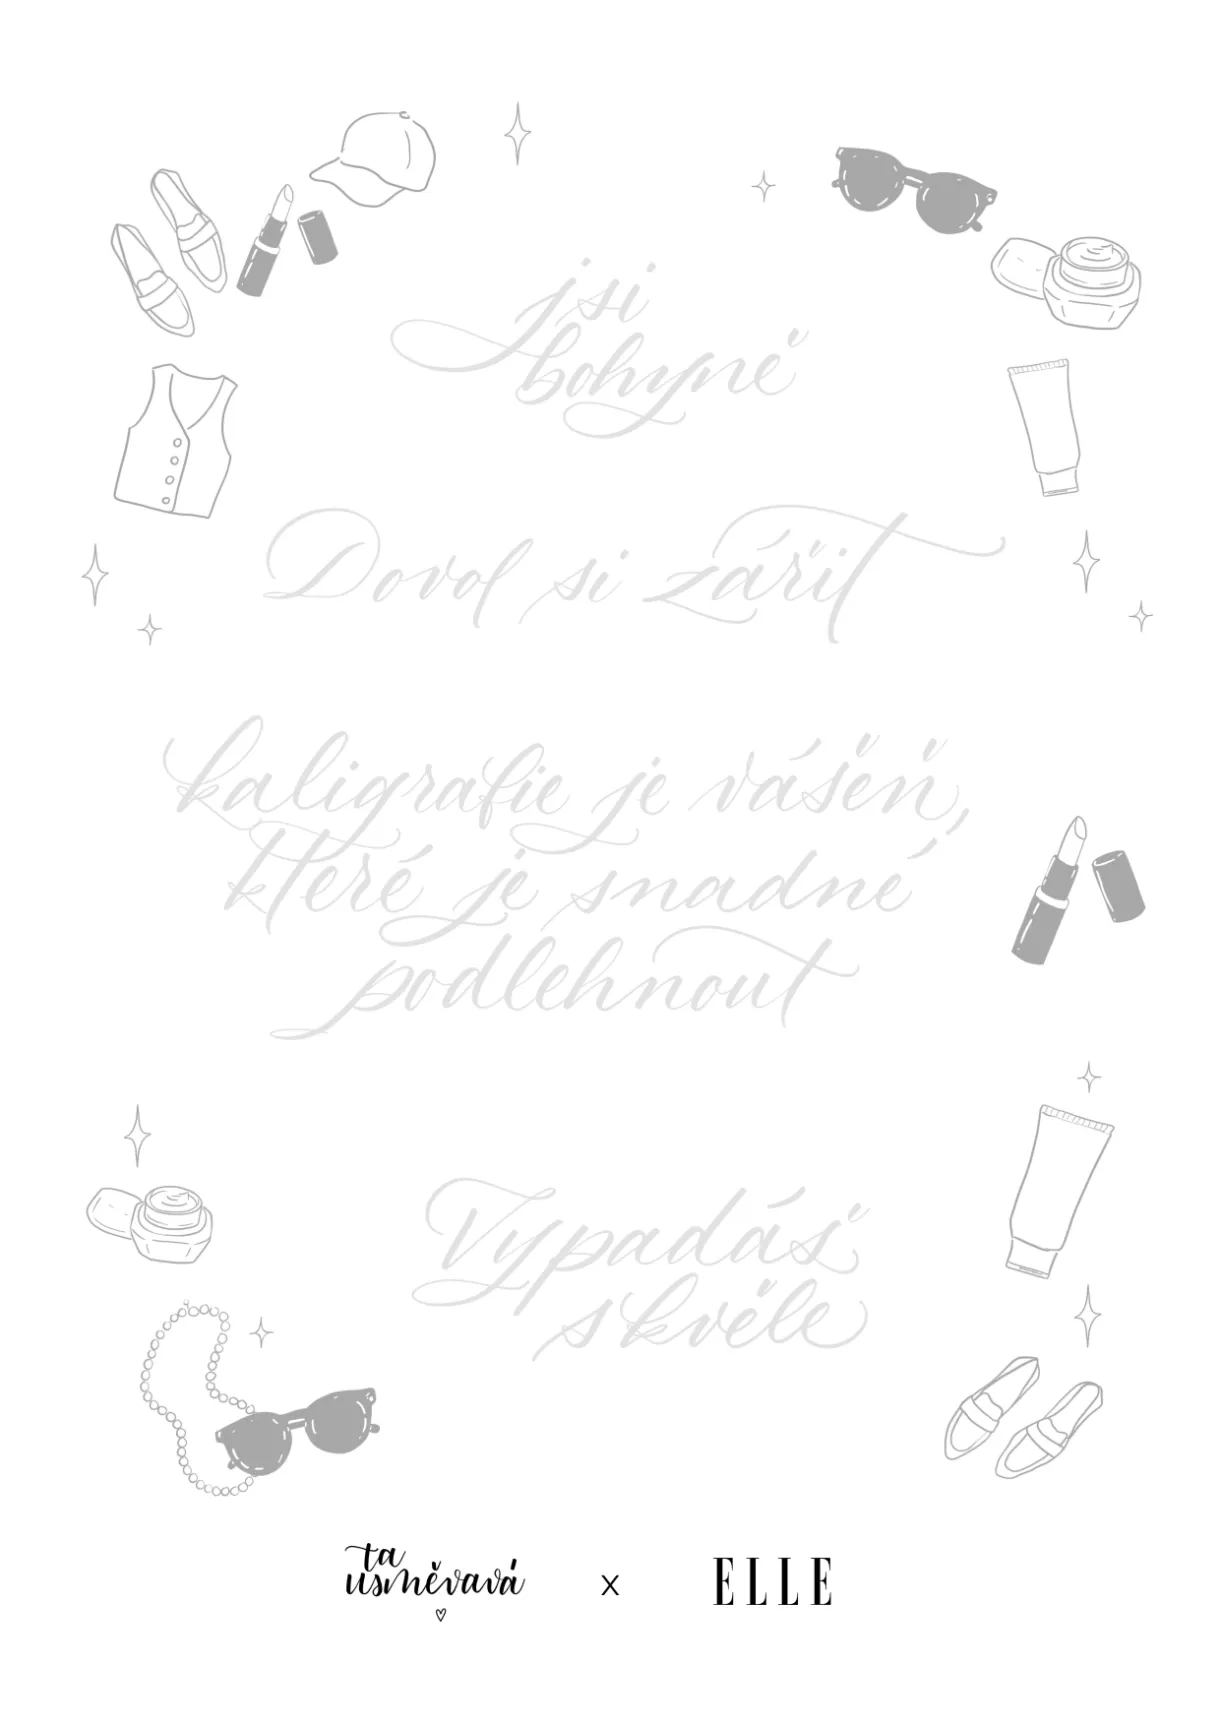 jsi
bohyně
Dovol si zářit
kaligrafie je vášeň,
které je snadné
podlehnout
Vypadáš
skvěle
ta
usměvavá
x
ELLE